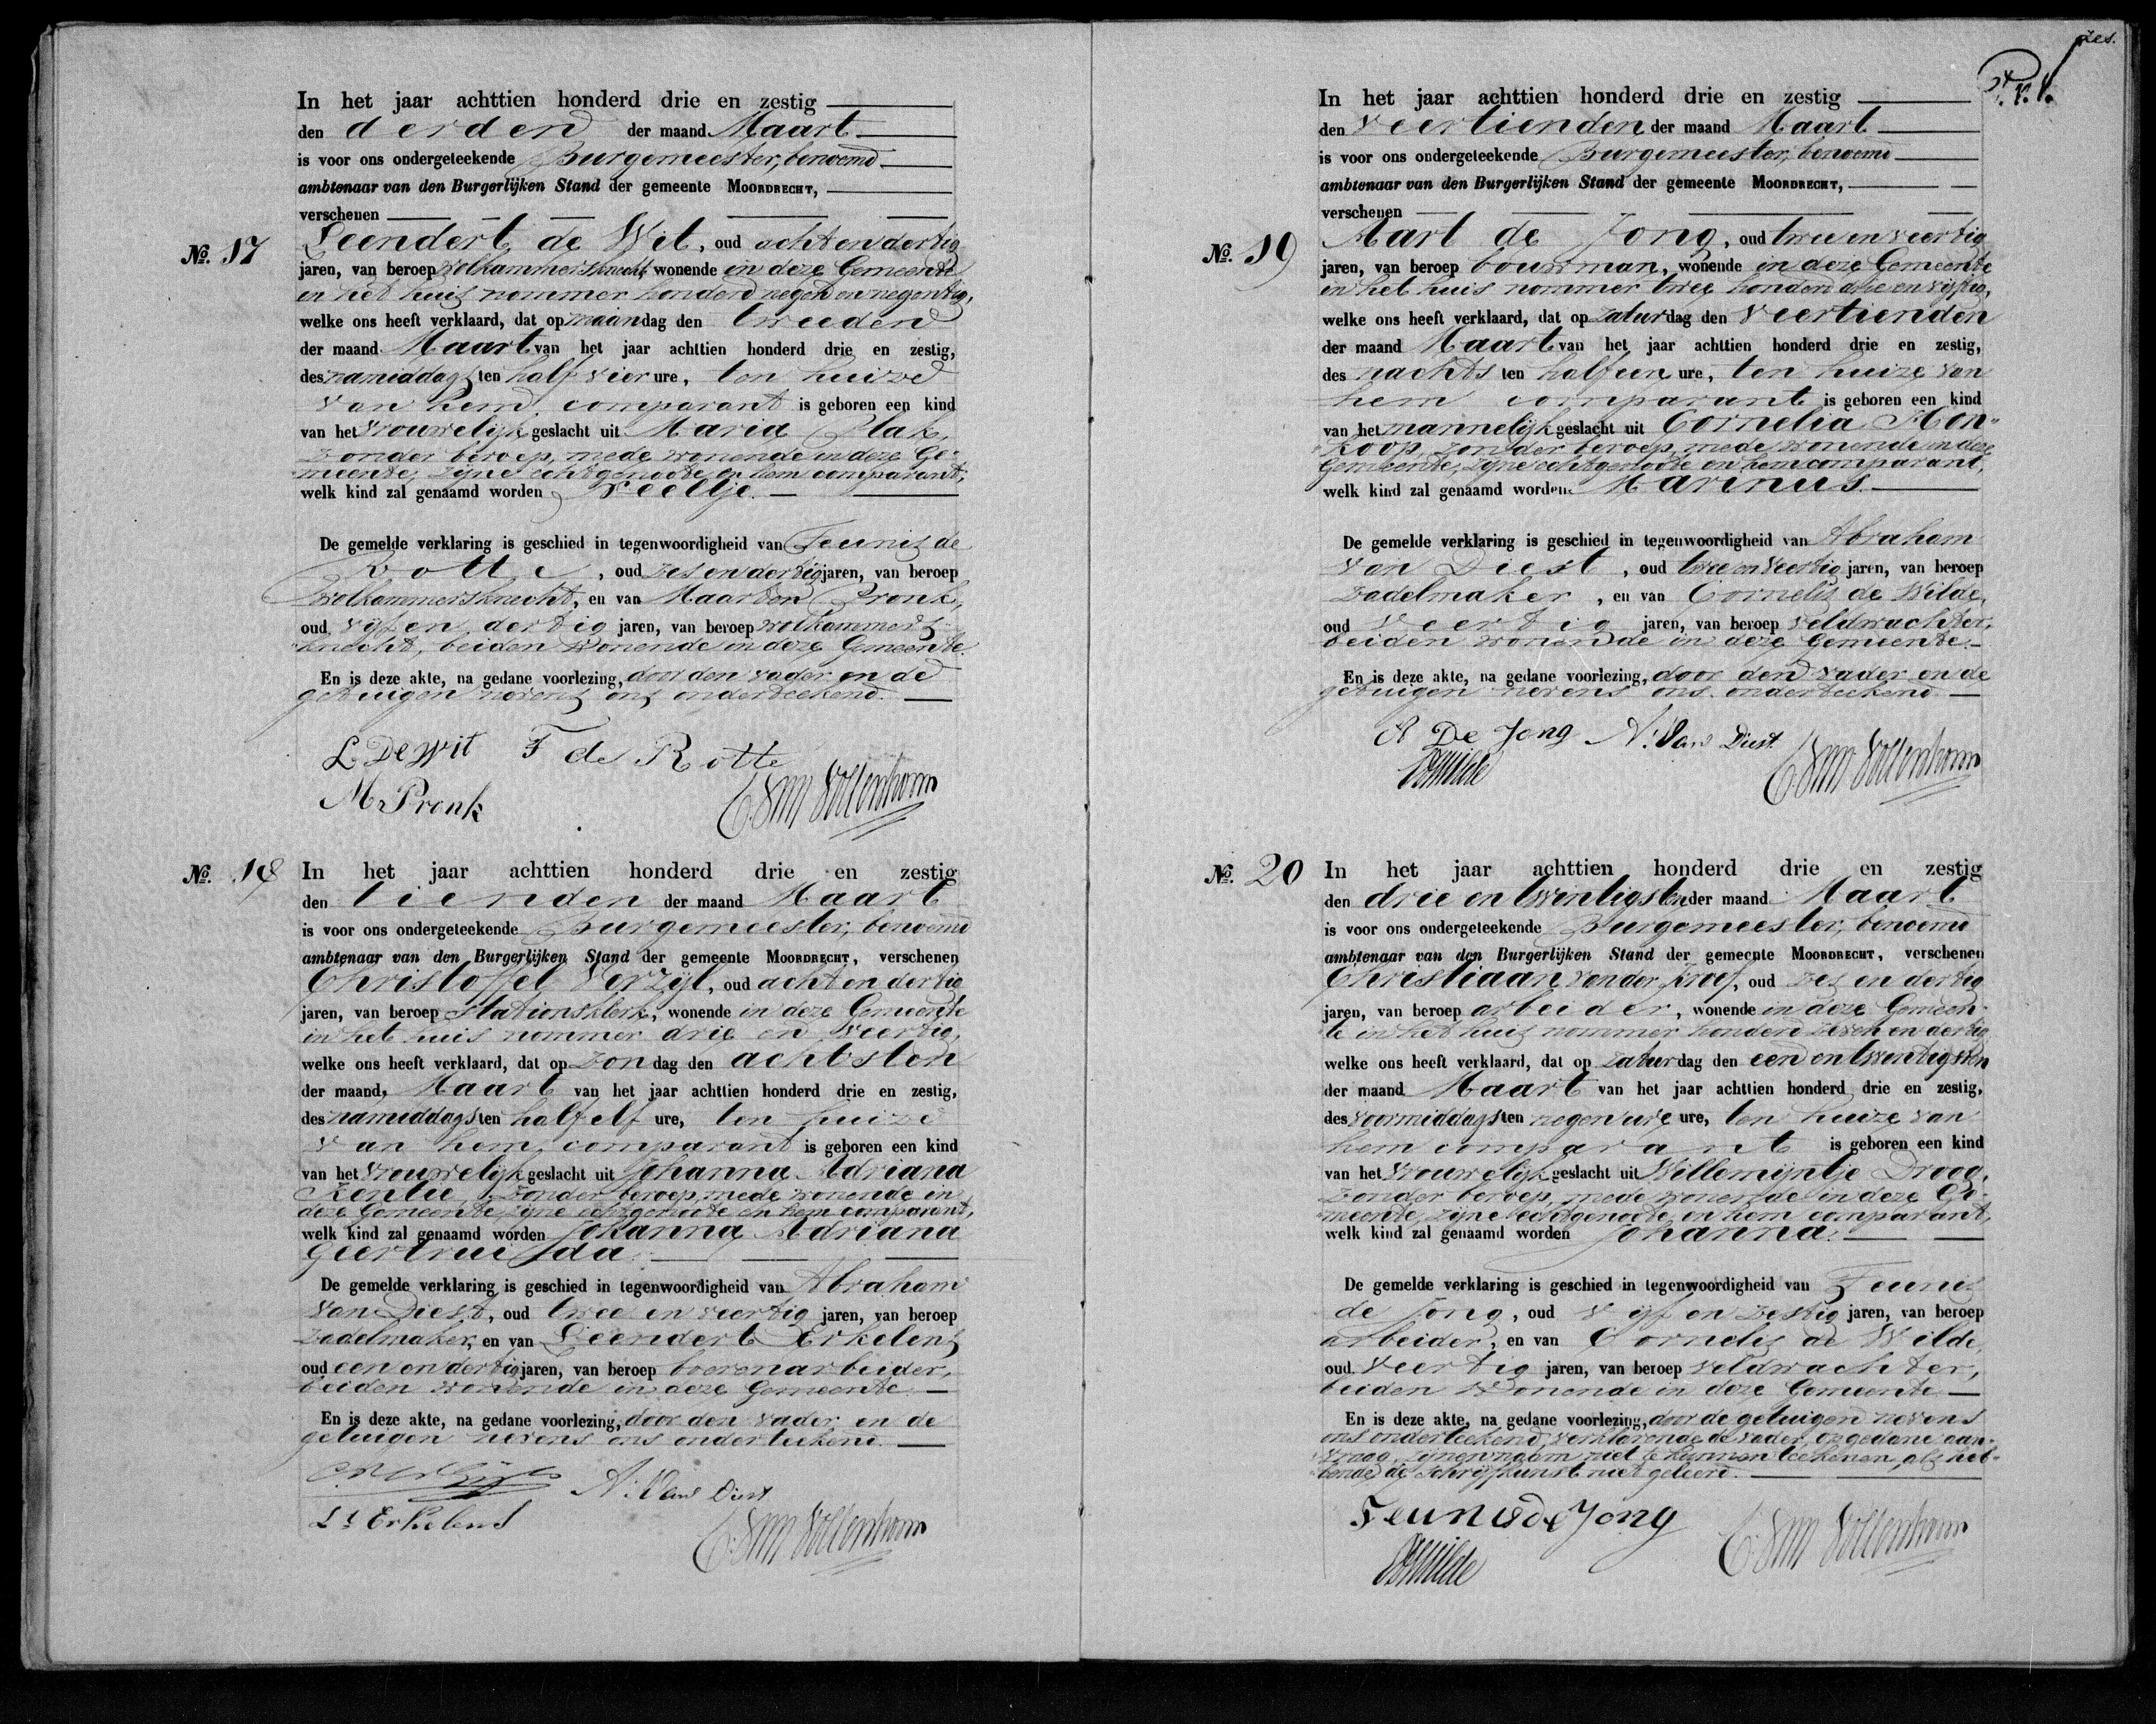 In het jaar achttien honderd drie en zestig
den derden der maand Maart
is voor ons ondergeteekende Burgemeester, benoemd
ambtenaar van den Burgerlijken Stand der gemeente MOORDRECHT,
verschenen
No. 17 Leendert de Wit, oud acht en dertig
jaren, van beroep wolkammersknecht, wonende in deze Gemeente
in het huis nommer honderd negen en negentig,
welke ons heeft verklaard, dat op maandag den tweeden
der maand Maart van het jaar achttien honderd drie en zestig,
des namiddags ten half vier ure, ten huize
van hem comparant is geboren een kind
van het vrouwelijk geslacht uit Maria Plak,
zonder beroep, mede wonende in deze Ge-
meente, zijne echtgenoote en hem comparant,
welk kind zal genaamd worden Neeltje.
De gemelde verklaring is geschied in tegenwoordigheid van Teunis de
Rotte, oud zes en dertig jaren, van beroep
wolkammersknecht, en van Maarten Pronk,
oud vijf en dertig jaren, van beroep wolkammers
knecht, beiden wonende in deze Gemeente.
En is deze akte, na gedane voorlezing, door den vader en de
getuigen nevens ons onderteekend.
L De Wit F de Rotte
M Pronk C. van Vollenhoven
No. 18 In het jaar achttien honderd drie en zestig
den tienden der maand Maart
is voor ons ondergeteekende Burgemeester, benoemd
ambtenaar van den Burgerlijken Stand der gemeente MOORDRECHT, verschenen
Christoffel Verzijl, oud acht en dertig
jaren, van beroep stationsklerk, wonende in deze Gemeente
in het huis nommer drie en veertig,
welke ons heeft verklaard, dat op zondag den achtsten
der maand Maart van het jaar achttien honderd drie en zestig,
des namiddags ten half elf ure, ten huize
van hem comparant is geboren een kind
van het vrouwelijk geslacht uit Johanna Adriana
zonder beroep, mede wonende in
deze Gemeente, zijne echtgenoote en hem comparant,
welk kind zal genaamd worden Johanna Adriana
Geertruida.
De gemelde verklaring is geschied in tegenwoordigheid van Abraham
van Diest, oud twee en veertig jaren, van beroep
zadelmaker, en van Leendert Erkelens
oud een en dertig jaren, van beroep boerenarbeider,
beiden wonende in deze Gemeente.
En is deze akte, na gedane voorlezing, door den vader en de
getuigen nevens ons onderteekend.
A: Van Diest
Ls Erkelens C. van Vollenhoven
zes.
In het jaar achttien honderd drie en zestig
den veertienden der maand Maart
is voor ons ondergeteekende Burgemeester, benoemd
ambtenaar van den Burgerlijken Stand der gemeente MOORDRECHT,
verschenen
No. 19 Aart de Jong, oud twee en veertig
jaren, van beroep bouwman, wonende in deze Gemeente
in het huis nommer twee honderd drie en vijftig,
welke ons heeft verklaard, dat op zaturdag den veertienden
der maand Maart van het jaar achttien honderd drie en zestig,
des nachts ten half een ure, ten huize van
hem comparant is geboren een kind
van het mannelijk geslacht uit Cornelia Hon-
koop, zonder beroep, mede wonende in deze
Gemeente, zijne echtgenoote en hem comparant,
welk kind zal genaamd worden Marinus.
De gemelde verklaring is geschied in tegenwoordigheid van Abraham
van Diest, oud twee en veertig jaren, van beroep
zadelmaker, en van Cornelis de Wilde,
oud veertig jaren, van beroep veldwachter,
beiden wonende in deze Gemeente.
En is deze akte, na gedane voorlezing, door den vader en de
getuigen nevens ons onderteekend.
A De Jong A: Van Diest
CdWilde C. van Vollenhoven
No. 20 In het jaar achttien honderd drie en zestig
den drie en twintigsten der maand Maart
is voor ons ondergeteekende Burgemeester, benoemd
ambtenaar van den Burgerlijken Stand der gemeente MOORDRECHT, verschenen
Christiaan van der Kroef, oud zes en dertig
jaren, van beroep arbeider, wonende in deze Gemeen-
te in het huis nommer honderd zeven en dertig
welke ons heeft verklaard, dat op zaturdag den een en twintigsten
der maand Maart van het jaar achttien honderd drie en zestig,
des voormiddags ten negen ure ure, ten huize van
hem comparant is geboren een kind
van het vrouwelijk geslacht uit Willemijntje Droog,
zonder beroep, mede wonende in deze Ge-
meente, zijne echtgenoote en hem comparant,
welk kind zal genaamd worden Johanna.
De gemelde verklaring is geschied in tegenwoordigheid van Teunis
de Jong, oud vijf en zestig jaren, van beroep
arbeider, en van Cornelis de Wilde,
oud veertig jaren, van beroep veldwachter,
beiden wonende in deze Gemeente
En is deze akte, na gedane voorlezing, door de getuigen nevens
ons onderteekend, verklarende de vader, op gedane aan-
vraag, zijnen naam niet te kunnen teekenen, als heb-
bende de schrijfkunst niet geleerd.
Teunis de Jong C. van Vollenhoven
CdWilde